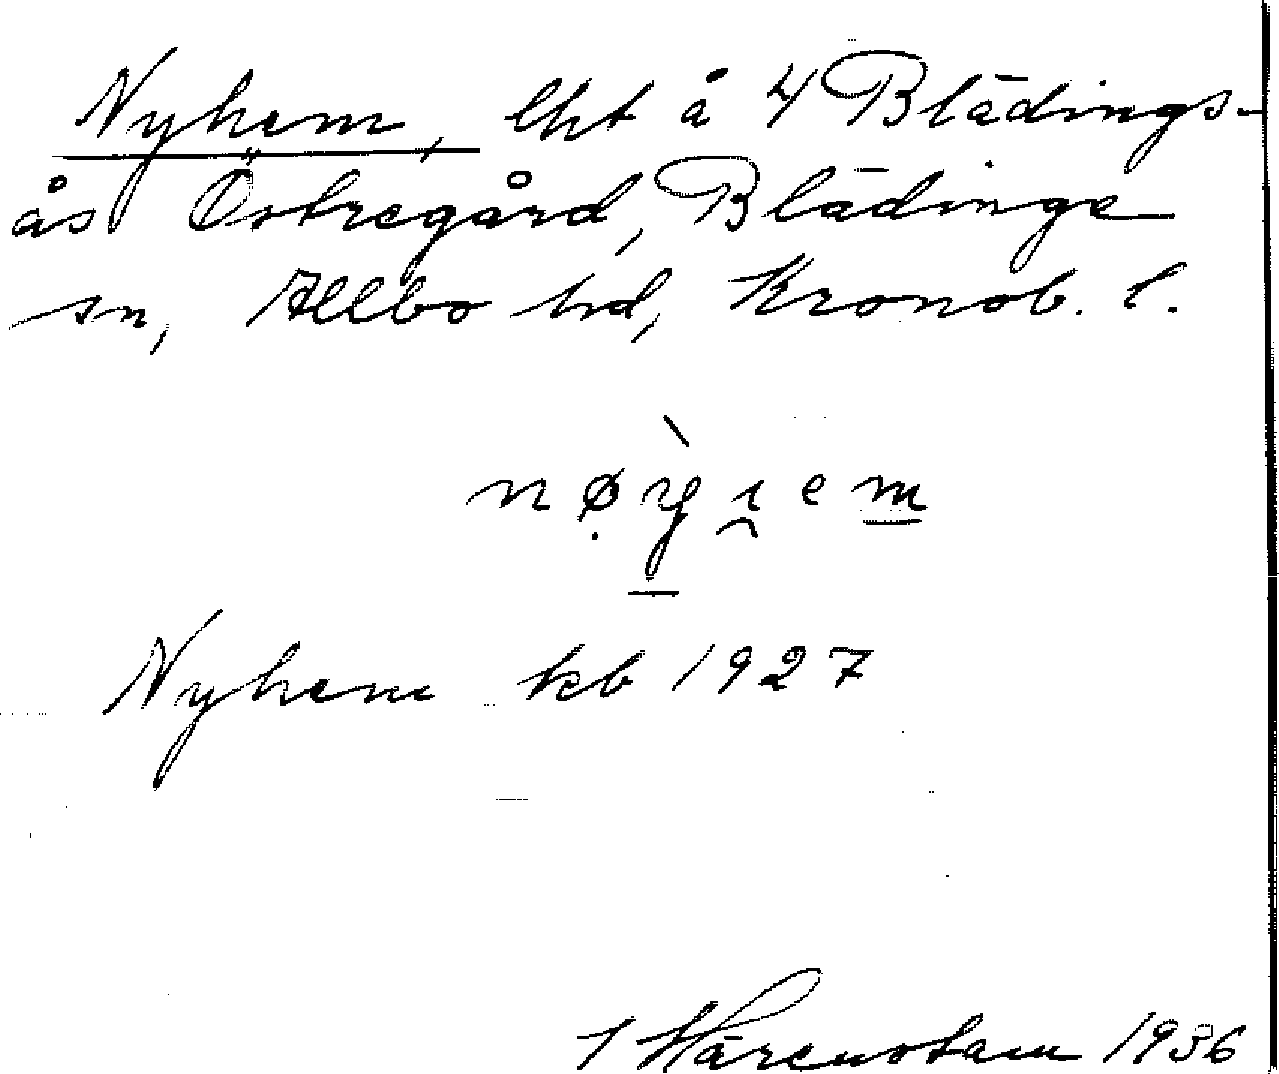 Nyhem, lht å 4 Blädings-
ås Östregård, Blädinge
sn, Allbo hd, Kronob. l.
nøyıem
Nyhem kb 1927
Wärenstam 1936